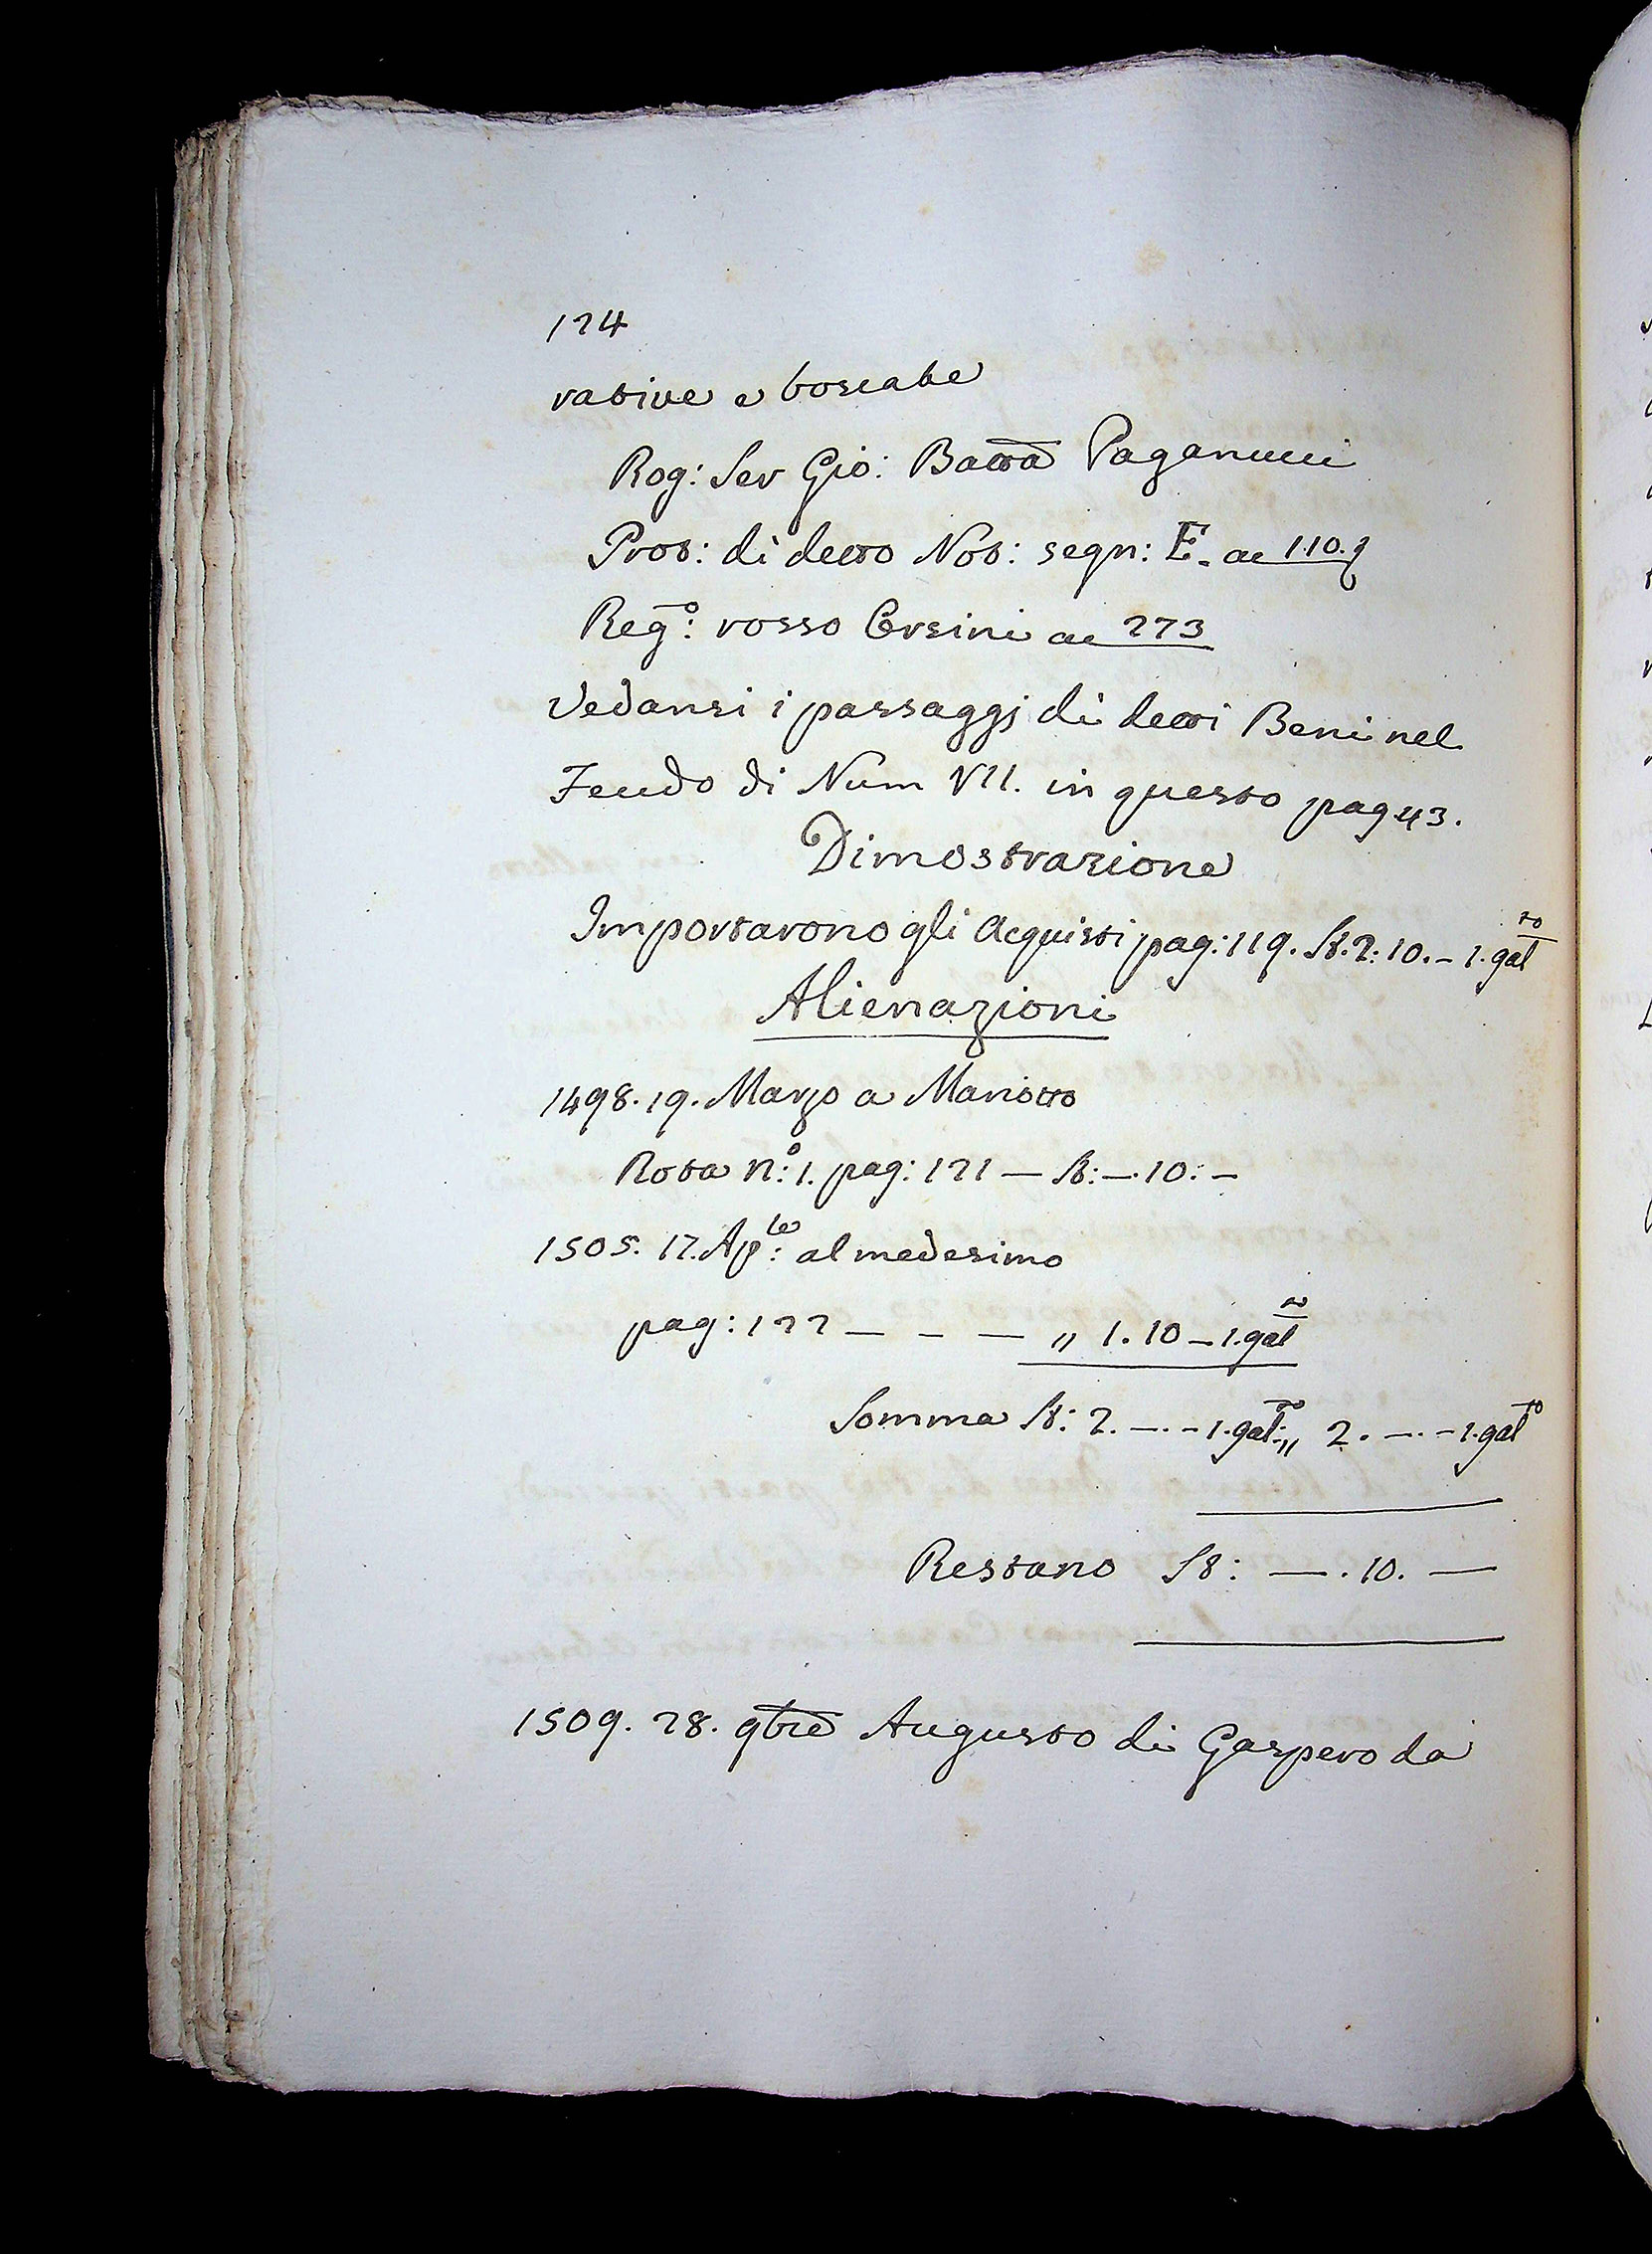 124
rative e boscate
Rog: Ser Gio: Batta Paganucci
Prot: di detto Not: segn: E. ac 110.
Reg.º: rosso Orsini ac 273
Vedansi i passaggj di detti Beni nel
Feudo di Num VII. in questo pag 43.
Dimostrazione
Importarono gli Acquisti pag: 119. St. 2: 10. - 1. galto
Alienazioni
1498. 19. Marzo a Mariotto
Rota n.º: 1. pag: 121 — St: —. 10: -
1505. 17. Aple: al medesimo
pag: 122 — — — „ 1. 10 — 1. galto
Somma St: 2. —. - 1. galto: „ 2. —. - 1. galto
Restano St: —. 10. —
1509. 28. 9bre Augusto di Gaspero da